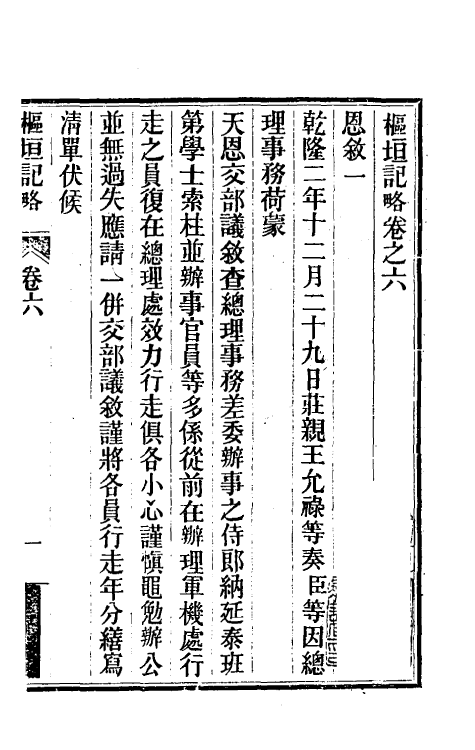 樞垣記略卷之六
恩敘一
乾隆二年十二月二十九日莊親王允祿等奏臣等因總
理事務荷蒙
天恩交部議敘查總理事務差委辦事之侍郎納延泰班
第學士索柱並辦事官員等多係從前在辦理軍機處行
走之員復在總理處效力行走俱各小心謹愼黽勉辦公
並無過失應請一併交部議敘謹將各員行走年分繕寫
清單伏候
樞垣記略 卷六 一